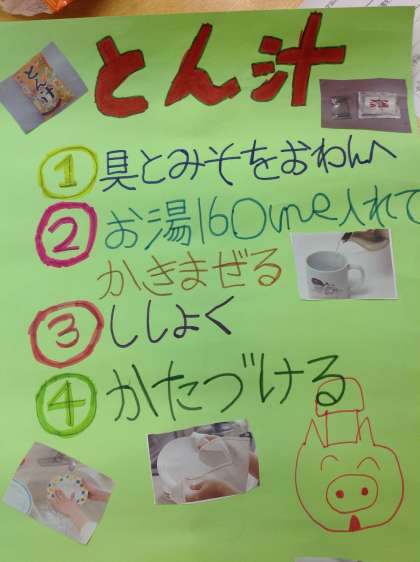 とん汁
とん汁
① 具とみそをおわんへ
② お湯160ml入れて
かきまぜる
③ ししょく
④ かたづける